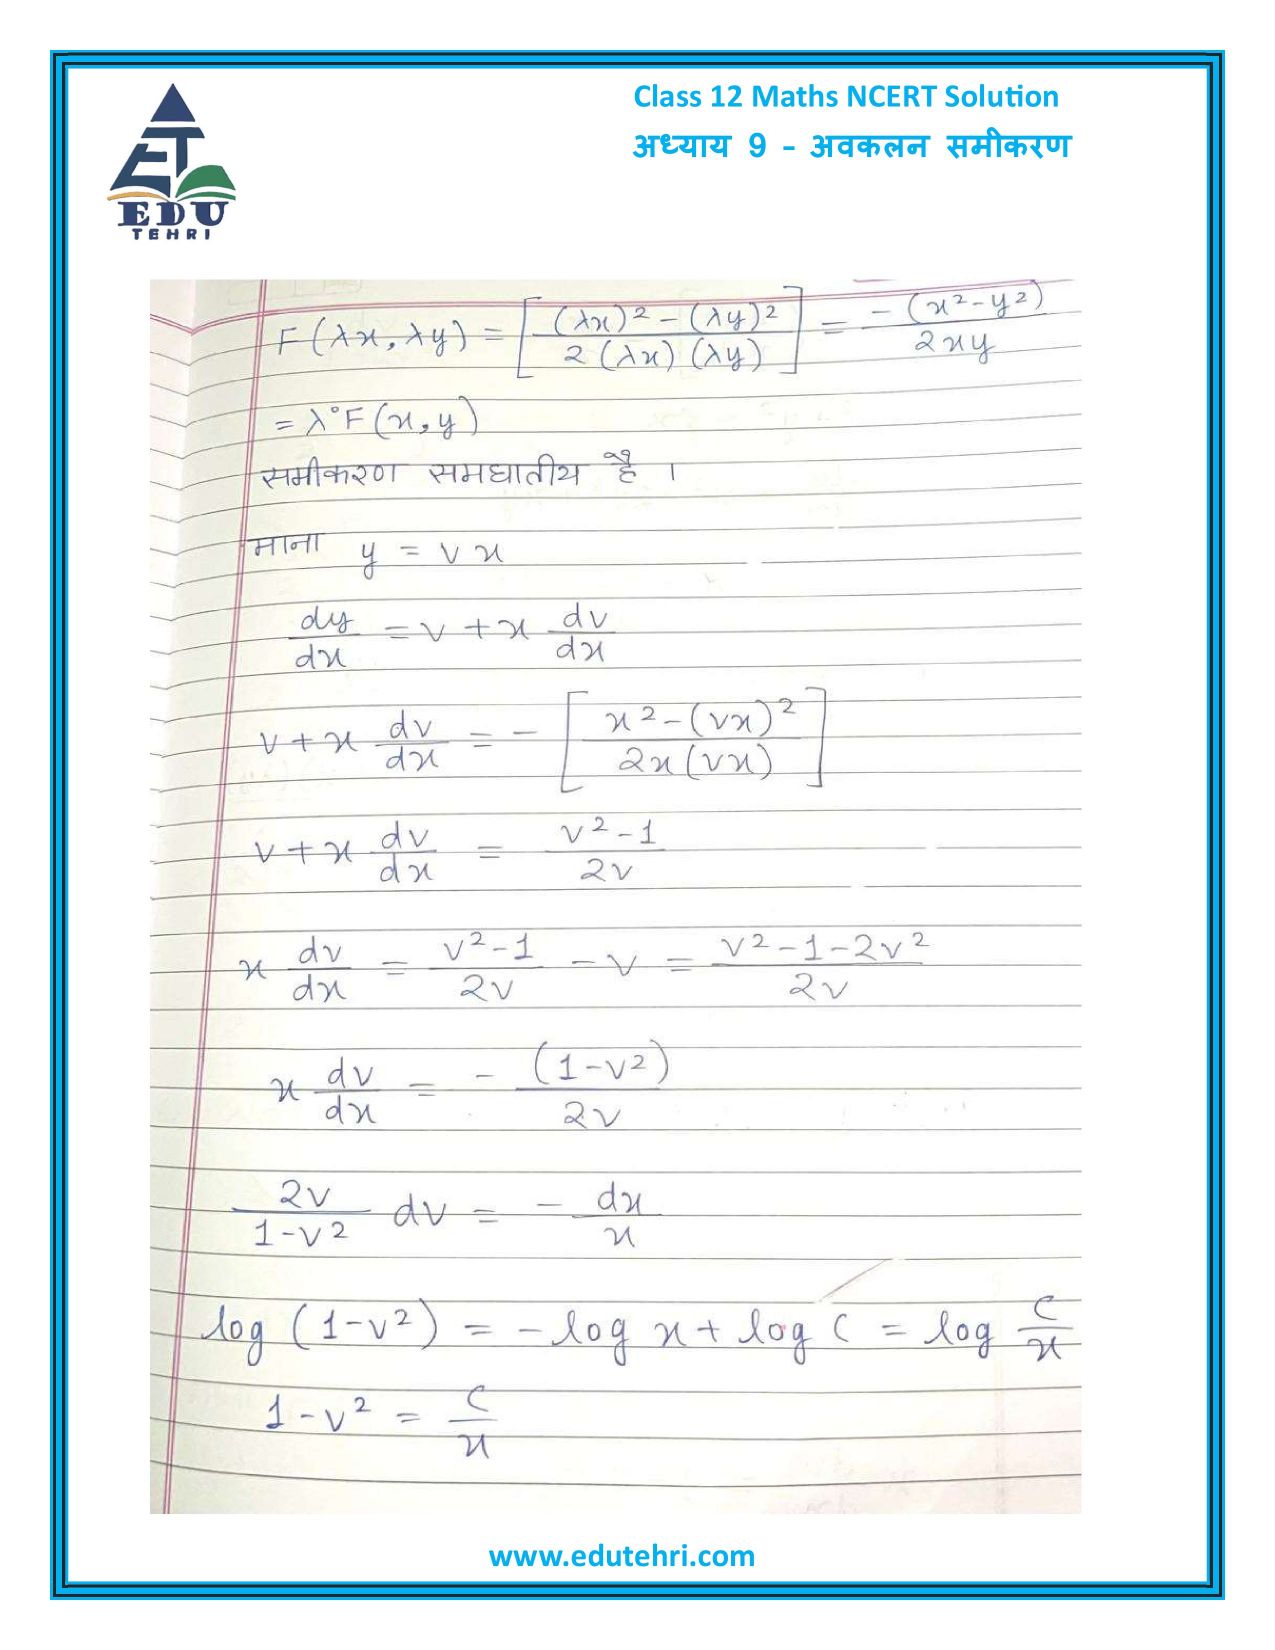 Class 12 Maths NCERT Solution
अध्याय 9 – अवकलन समीकरण
EDU
TEHRI
F(λx, λy) = [ (λx)² – (λy)² / 2(λx)(λy) ] = –(x² – y²) / 2xy
= λ°F(x, y)
समीकरण समघातीय है ।
माना y = vx
dy/dx = v + x dv/dx
v + x dv/dx = – [ x² – (vx)² / 2x(vx) ]
v + x dv/dx = v² – 1 / 2v
x dv/dx = v² – 1 / 2v – v = v² – 1 – 2v² / 2v
x dv/dx = – (1 – v²) / 2v
2v / 1 – v² dv = – dx/x
log (1 – v²) = – log x + log C = log C/x
1 – v² = C/x
www.edutehri.com